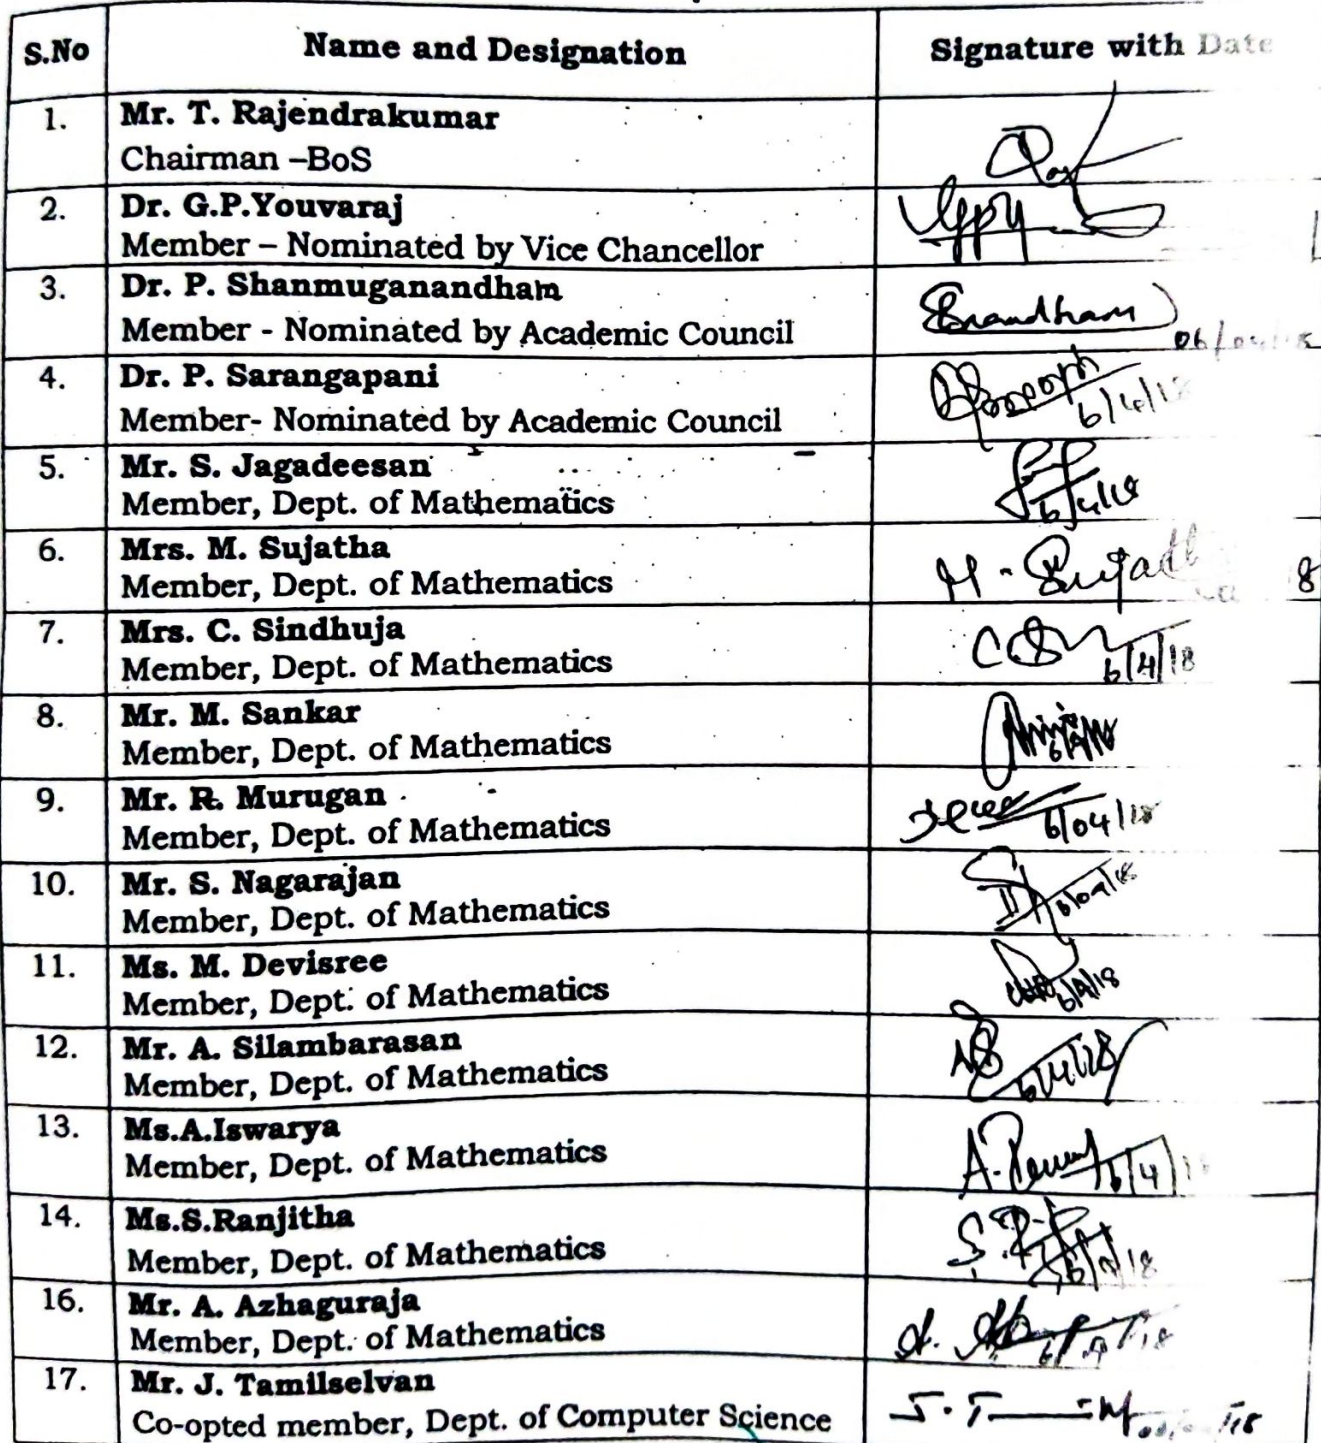 S.No Name and Designation Signature with Date
1. Mr. T. Rajendrakumar
Chairman –BoS
2. Dr. G.P.Youvaraj
Member – Nominated by Vice Chancellor
3. Dr. P. Shanmuganandham
Member - Nominated by Academic Council
4. Dr. P. Sarangapani
Member- Nominated by Academic Council
6/4/18
5. Mr. S. Jagadeesan
Member, Dept. of Mathematics
6/4/18
6. Mrs. M. Sujatha
Member, Dept. of Mathematics
M. Sujath
8
7. Mrs. C. Sindhuja
Member, Dept. of Mathematics
6/4/18
8. Mr. M. Sankar
Member, Dept. of Mathematics
9. Mr. R. Murugan
Member, Dept. of Mathematics
6/04/18
10. Mr. S. Nagarajan
Member, Dept. of Mathematics
6/04/18
11. Ms. M. Devisree
Member, Dept. of Mathematics
6/4/18
12. Mr. A. Silambarasan
Member, Dept. of Mathematics
6/4/18
13. Ms.A.Iswarya
Member, Dept. of Mathematics
6/4/1
14. Ms.S.Ranjitha
Member, Dept. of Mathematics
6/4/18
16. Mr. A. Azhaguraja
Member, Dept. of Mathematics
17. Mr. J. Tamilselvan
Co-opted member, Dept. of Computer Science